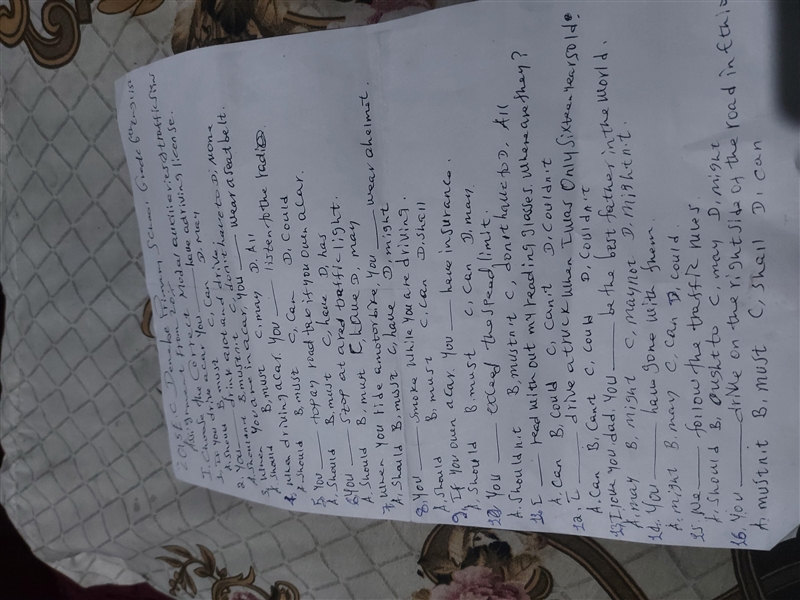 Primary School Grade 6th English
Assignment from 20% Modal auxiliaries & traffic signs
I. Choose the Correct
1. If you drive acar you ___ have adriving license.
A. Should B. must C. Can D. may
2. You ___ drink alcohol and drive.
A. Shouldnt B. mustn't C, don't have to D, None
3. When you are in acar, you ___ wear a seat belt.
A. Should B, must C, may D. All
4. When driving acar. You ___ listen to the radio
A. Should B, must C, Can D, Could
5. You ___ to pay road tax if you own a car.
A. Should B, must C, have D, has
6. You ___ Stop at ared traffic light.
A. Should B, must C, have D, may
7. When you ride amotorbike, you ___ wear ahelmet.
A. Should B, must C, have D, might
8. You ___ Smoke while you are driving.
A. Should B. must C. can D. shell
9. If you own acar. You ___ have insurance.
A. Should B. must C, Can D, may
10. You ___ exceed the speed limit.
A. Shouldn't B, mustn't C, don't have to D, All
11. I ___ read without my reading glasses. Where are they?
A. Can B, Could C, Can't D, Couldn't
12. I ___ drive a truck when I was Only Sixteen years old.
A. Can B. Can't C, Could D, Couldn't
13. I love you dad. You ___ be the best father in the World.
A. may B. might C, may not D. Might n't.
14. You ___ have gone with them.
A. might B. may C, can D, could.
15. We ___ follow the traffic rules.
A. Should B, Ought to C, may D, might
16. You ___ drive on the right side of the road in Ethio
A. mustn't B, must C, shell D, can